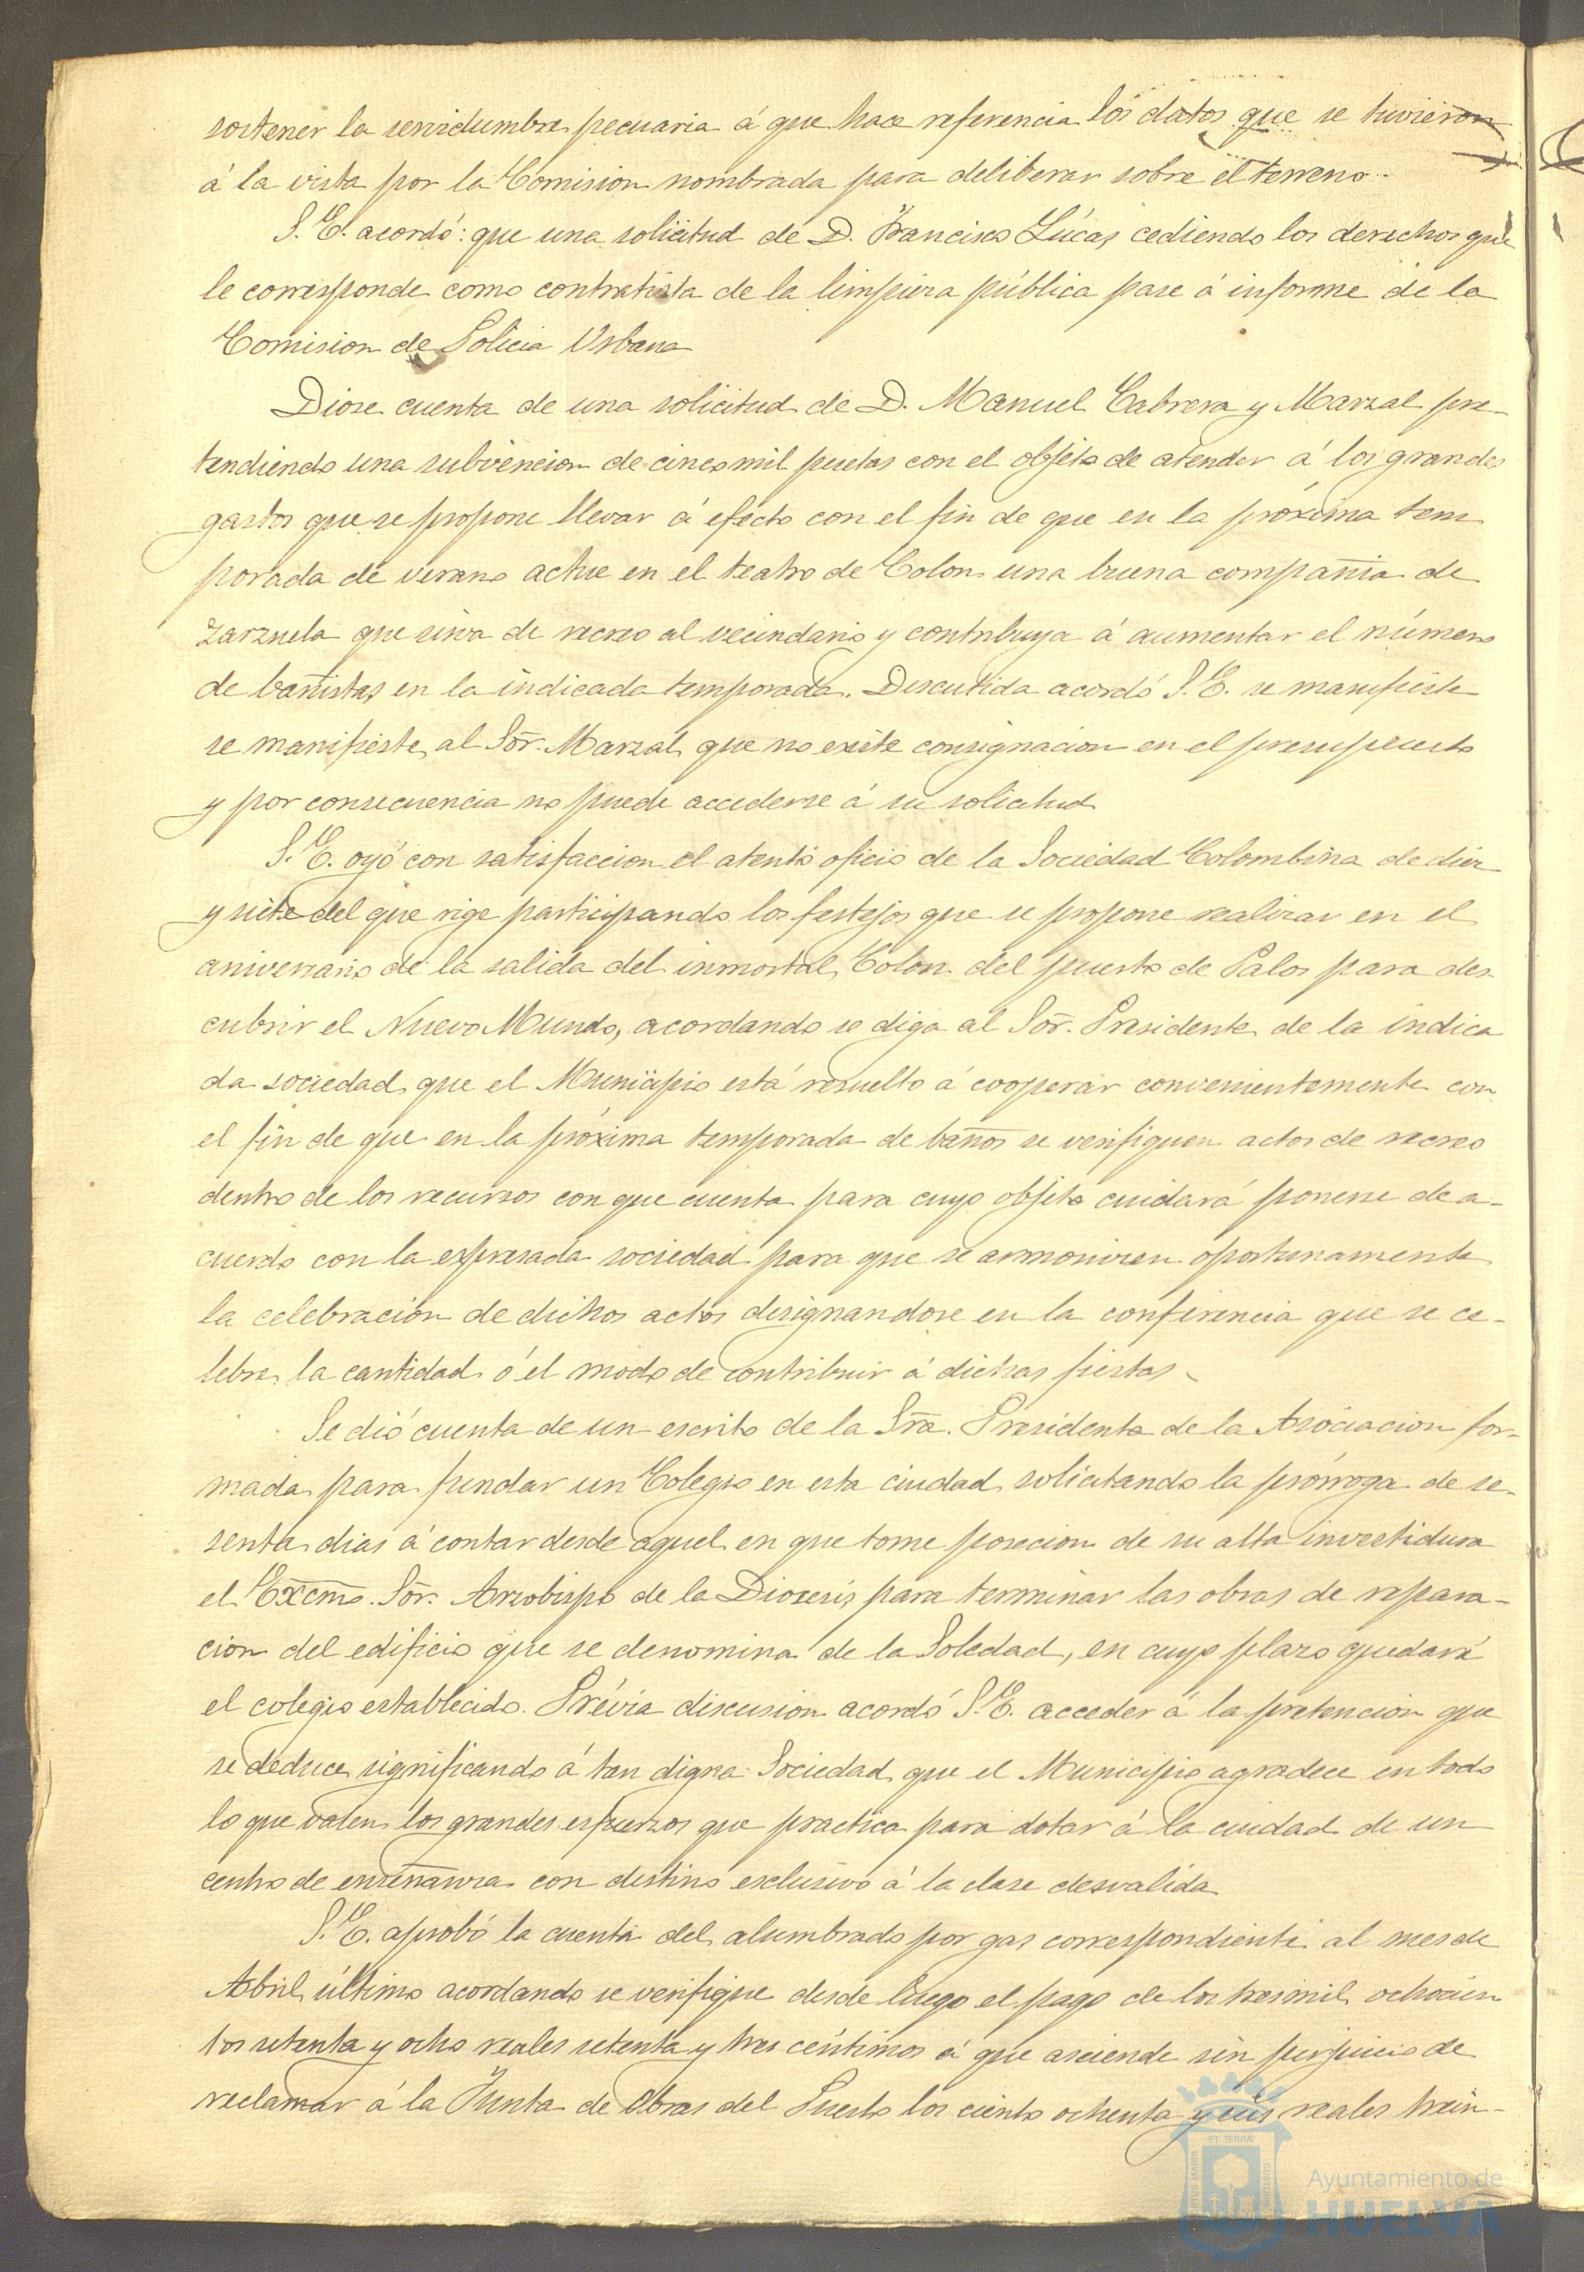 sostener la servidumbre pecuaria á que hace referencia los datos que se tuvieron
á la vista por la Comision nombrada para deliberar sobre el terreno.
S. E. acordó: que una solicitud de D. Francisco Lúcas cediendo los derechos que
le corresponde como contratista de la limpieza pública pase á informe de la
Comision de Policia Urbana
Diose cuenta de una solicitud de D. Manuel Cabrera y Marzal pre-
tendiendo una subvencion de cinco mil pesetas con el objeto de atender á los grandes
gastos que se propone llevar á efecto con el fin de que en la próxima tem
porada de verano actue en el teatro de Colon una buena compañia de
zarzuela que sirva de recreo al vecindario y contribuya á aumentar el número
de bañistas en la indicada temporada. Discutida acordó S. E. se manifieste
se manifieste al Sor. Marzal que no existe consignacion en el presupuesto
y por consecuencia no puede accederse á su solicitud
S. E. oyó con satisfaccion el atento oficio de la Sociedad Colombina de diez
y siete del que rige participando los festejos que se propone realizar en el
aniversario de la salida del inmortal Colon del puerto de Palos para des-
cubrir el Nuevo Mundo, acordando se diga al Sor. Presidente de la indica
da sociedad que el Municipio está resuelto á cooperar convenientemente con
el fin de que en la próxima temporada de baños se verifiquen actos de recreo
dentro de los recursos con que cuenta para cuyo objeto cuidará ponerse de a-
cuerdo con la expresada sociedad para que se armonizen oportunamente
la celebracion de dichos actos designandose en la conferencia que se ce-
lebre la cantidad ó el modo de contribuir á dichas fiestas
Se dió cuenta de un escrito de la Sra. Presidenta de la Asociacion for-
mada para fundar un Colegio en esta ciudad solicitando la prórroga de se-
senta dias á contar desde aquel en que tome posecion de su alta investidura
el Excmo. Sor. Arzobispo de la Diocesis para terminar las obras de repara-
cion del edificio que se denomina de la Soledad, en cuyo plazo quedará
el colegio establecido. Prévia discusion acordó S. E. acceder á la pretencion que
se deduce significando á tan digna Sociedad que el Municipio agradece en todo
lo que valen los grandes esfuerzos que practica para dotar á la ciudad de un
centro de enseñanza con destino esclusivo á la clase desvalida
S. E. aprobó la cuenta del alumbrado por gas correspondiente al mes de
Abril último acordando se verifique desde luego el pago de los tres mil ochocien
tos setenta y ocho reales setenta y tres céntimos á que asciende sin perjuicio de
reclamar á la Junta de Obras del Puerto los ciento ochenta y seis reales trein-
Ayuntamiento de
HUELVA